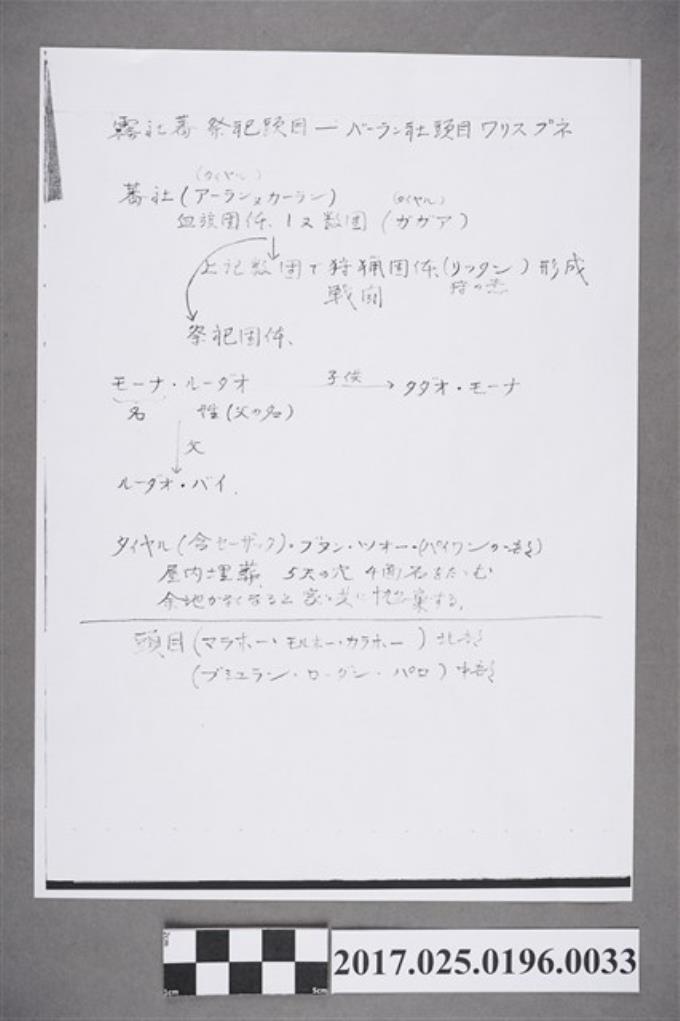 霧社蕃 祭祀頭目 ー バーラン社頭目 ワリス ブネ
(タイヤル) (タイヤル)
蕃社 (アーラン又カーラン)
血族団体、1又数団 (ガガア)
上記数団で狩猟団体、(リフタン) 形成
戦闘
祭祀団体、
モーナ・ルーダオ 子供 → タダオ・モーナ
名 姓 (父の名)
父
ルーダオ・バイ
タイヤル (含セーザック)・ブヌン・ツオー・(パイワンの一部)
屋内埋葬 5尺の穴 4面 石をたゝむ
余地がなくなると家と共に
頭目 (マラホー、モルホー・カラホー) 北部
(ブミユラン・ローダン・パロ) 中部
2cm
0cm
5cm
2017.025.0196.0033